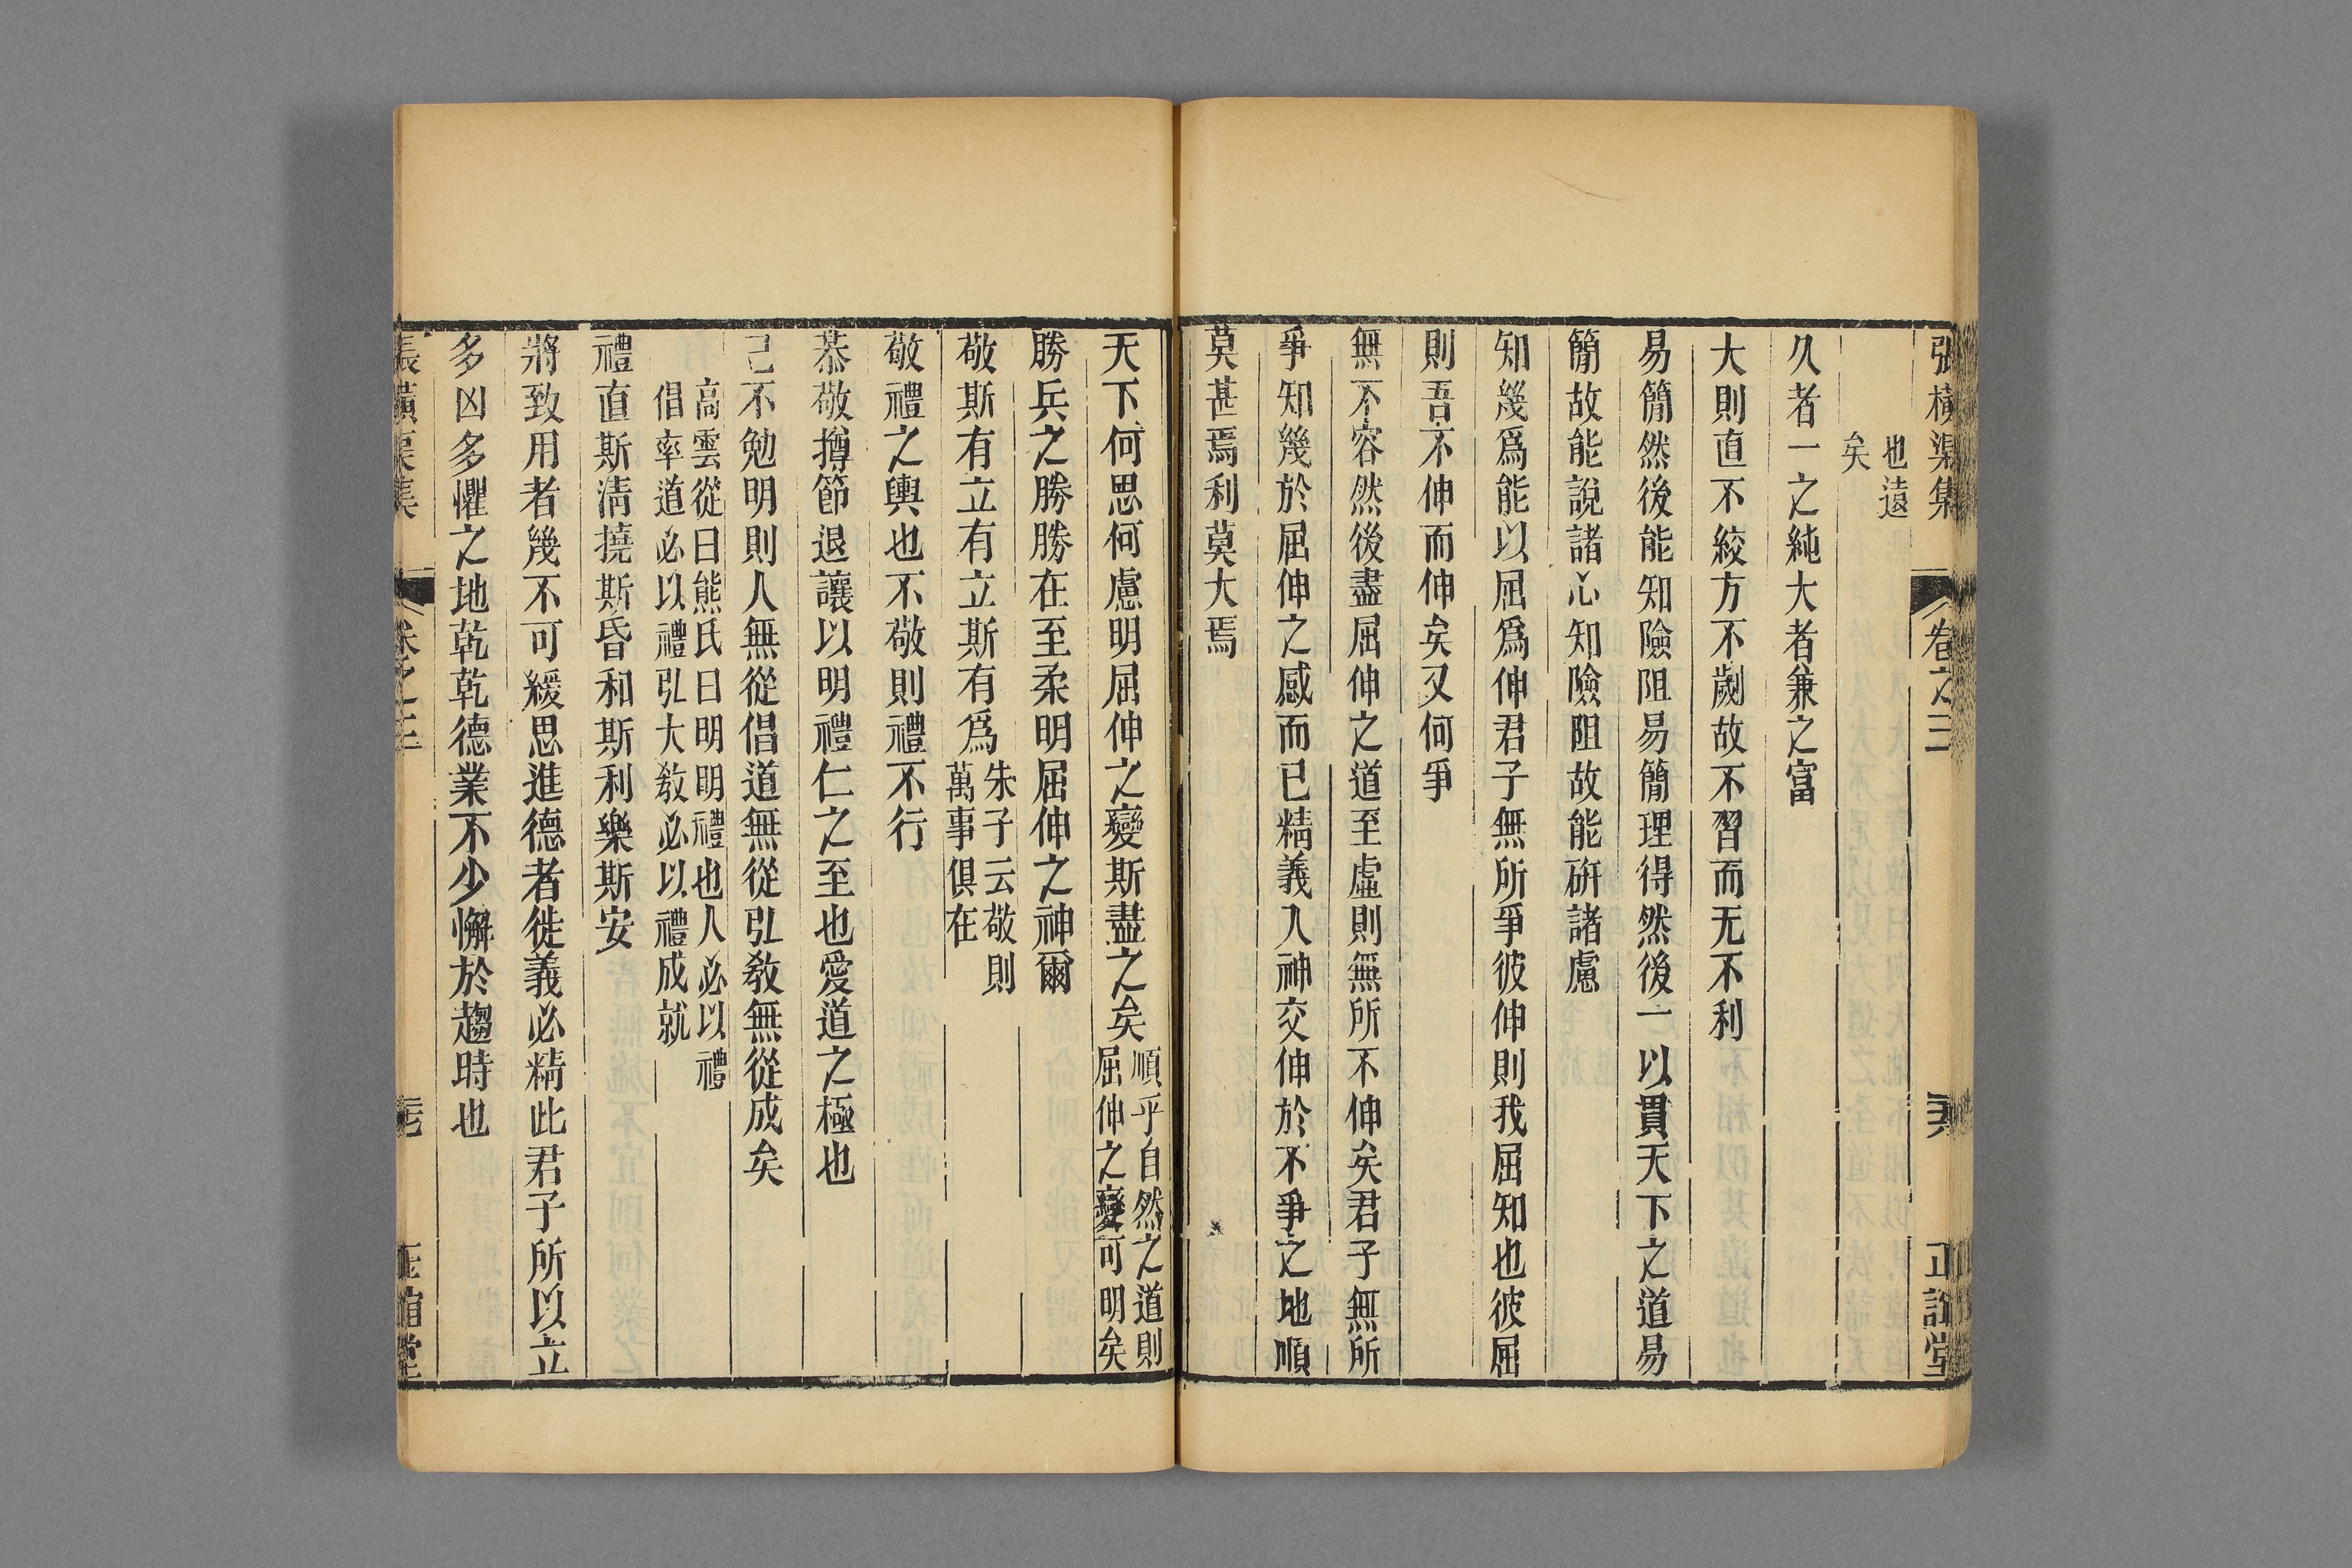 張橫渠集 卷之三 正誼堂
也遠
矣
久者一之純大者兼之富
大則直不絞方不劌故不習而无不利
易簡然後能知險阻易簡理得然後一以貫天下之道易
簡故能說諸心知險阻故能硏諸慮
知幾爲能以屈爲伸君子無所爭彼伸則我屈知也彼屈
則吾不伸而伸矣又何爭
無不容然後盡屈伸之道至虛則無所不伸矣君子無所
爭知幾於屈伸之感而已精義入神交伸於不爭之地順
莫甚焉利莫大焉
天下何思何慮明屈伸之變斯盡之矣順乎自然之道則
屈伸之變可明矣
勝兵之勝勝在至柔明屈伸之神爾
敬斯有立有立斯有爲朱子云敬則
萬事俱在
敬禮之輿也不敬則禮不行
恭敬撙節退讓以明禮仁之至也愛道之極也
己不勉明則人無從倡道無從弘敎無從成矣
高雲從曰熊氏曰明明禮也人必以禮
倡率道必以禮弘大敎必以禮成就
禮直斯淸撓斯昏和斯利樂斯安
將致用者幾不可緩思進德者徙義必精此君子所以立
多凶多懼之地乾乾德業不少懈於趨時也
張橫渠集 卷之三 正誼堂